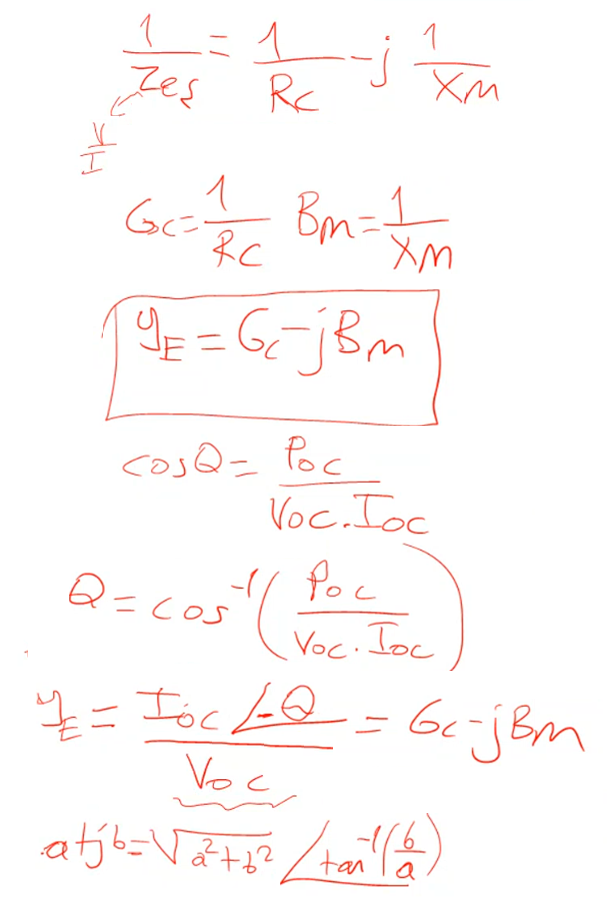 1/Zeş = 1/Rc - j 1/Xm
V/I
Gc = 1/Rc Bm = 1/Xm
yE = Gc - jBm
cosQ = Poc/Voc.Ioc
Q = cos⁻¹(Poc/Voc.Ioc)
yE = Ioc∠-Q/Voc = Gc - jBm
a+jb = √a²+b² ∠tan⁻¹(b/a)